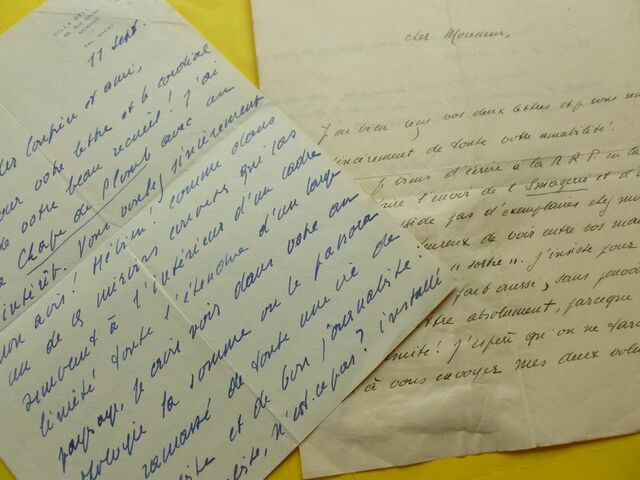 VILLA
MONACO
TÉL.
11 Sept.
Confrère et ami,
pour votre lettre et le cordial
de votre beau recueil! J'ai
Chape de Plomb avec un
intérêt. Vous voulez sincèrement
mon avis! Hé bien! comme dans
un de ces miroirs convexes qui ras
semblent à l'intérieur d'un cadre
limité toute l'étendue d'un large
paysage, je crois voir dans votre an
thologie la somme ou le panora
ramassé de toute une vie de
et de bon journaliste!
n'est-ce pas? installé
Cher Monsieur,
J'ai bien reçu vos deux lettres et vous
sincèrement de toute votre amabilité!
viens d'écrire à la R.P.F. en la
faire l'envoi de l'Imagerie et d'
pas d'exemplaires chez moi
heureux de voir entre vos mai
"sortie". J'insiste pour
fait aussi, sans pouvoi
absolument, parceque
J'espère qu'on ne tard
à vous envoyer mes deux volu